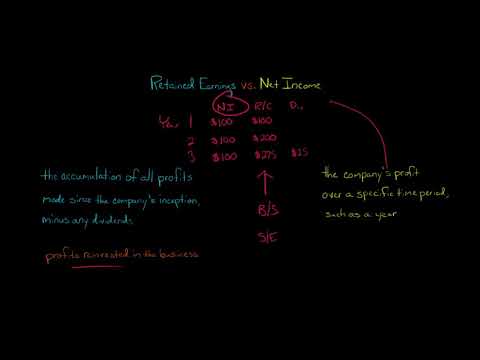 Retained Earnings vs. Net Income
NI R/E D..
Year 1 $100 $100
2 $100 $200
3 $100 $275 $25
the accumulation of all profits
made since the company's inception,
minus any dividends
profits reinvested in the business
B/S
S/E
the company's profit
over a specific time period,
such as a year